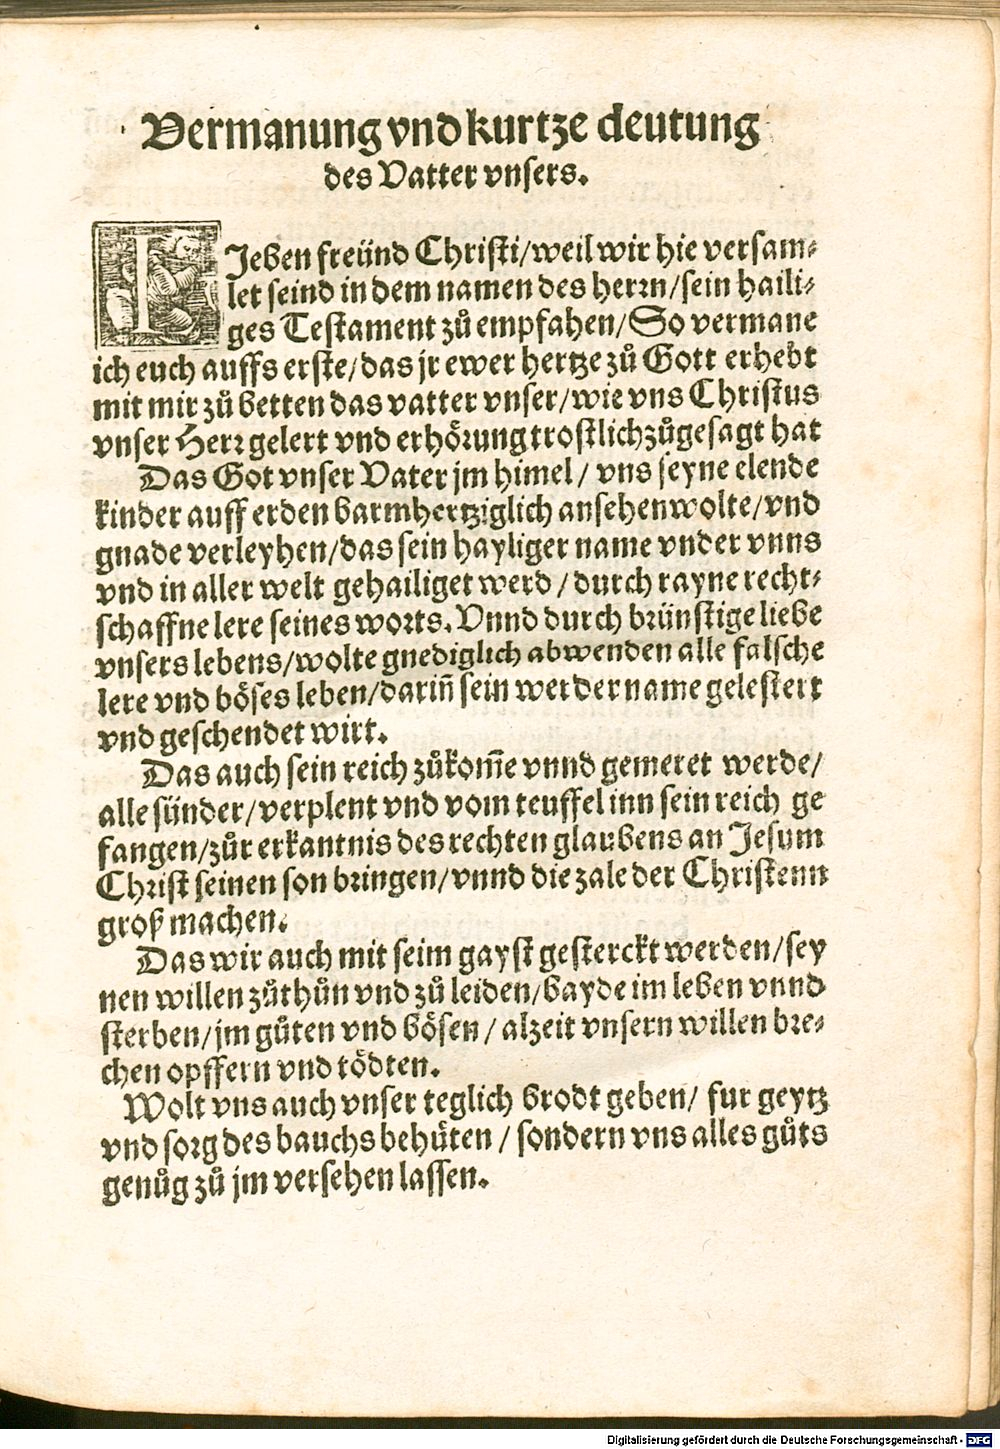 Vermanung vnd kurtze deutung
des Vatter vnsers.
LJeben freünd Christi/weil wir hie versam⸗
let seind in dem namen des herrn/sein haili⸗
ges Testament zů empfahen/So vermane
ich euch auffs erste/das jr ewer hertze zů Gott erhebt
mit mir zů betten das vatter vnser/wie vns Christus
vnser Herr gelert vnd erhörung trostlich zůgesagt hat
Das Got vnser Vater jm himel/ vns seyne elende
kinder auff erden barmhertziglich ansehen wolte/vnd
gnade verleyhen/das sein hayliger name vnder vnns
vnd in aller welt gehailiget werd/durch rayne recht⸗
schaffne lere seines worts. Vnnd durch brünstige liebe
vnsers lebens/wolte gnediglich abwenden alle falsche
lere vnd böses leben/dariñ sein werder name gelestert
vnd geschendet wirt.
Das auch sein reich zůkom̃e vnnd gemeret werde/
alle sünder/verplent vnd vom teuffel inn sein reich ge
fangen/zůr erkantnis des rechten glaubens an Jesum
Christ seinen son bringen/vnnd die zale der Christenn
groß machen.
Das wir auch mit seim gayst gesterckt werden/sey
nen willen zůthůn vnd zů leiden/bayde im leben vnnd
sterben/jm gůten vnd bösen/ alzeit vnsern willen bre⸗
chen opffern vnd tödten.
Wolt vns auch vnser teglich brodt geben/ fur geytz
vnd sorg des bauchs behüten/ sondern vns alles gůts
genůg zů jm versehen lassen.
Digitalisierung gefördert durch die Deutsche Forschungsgemeinschaft - DFG